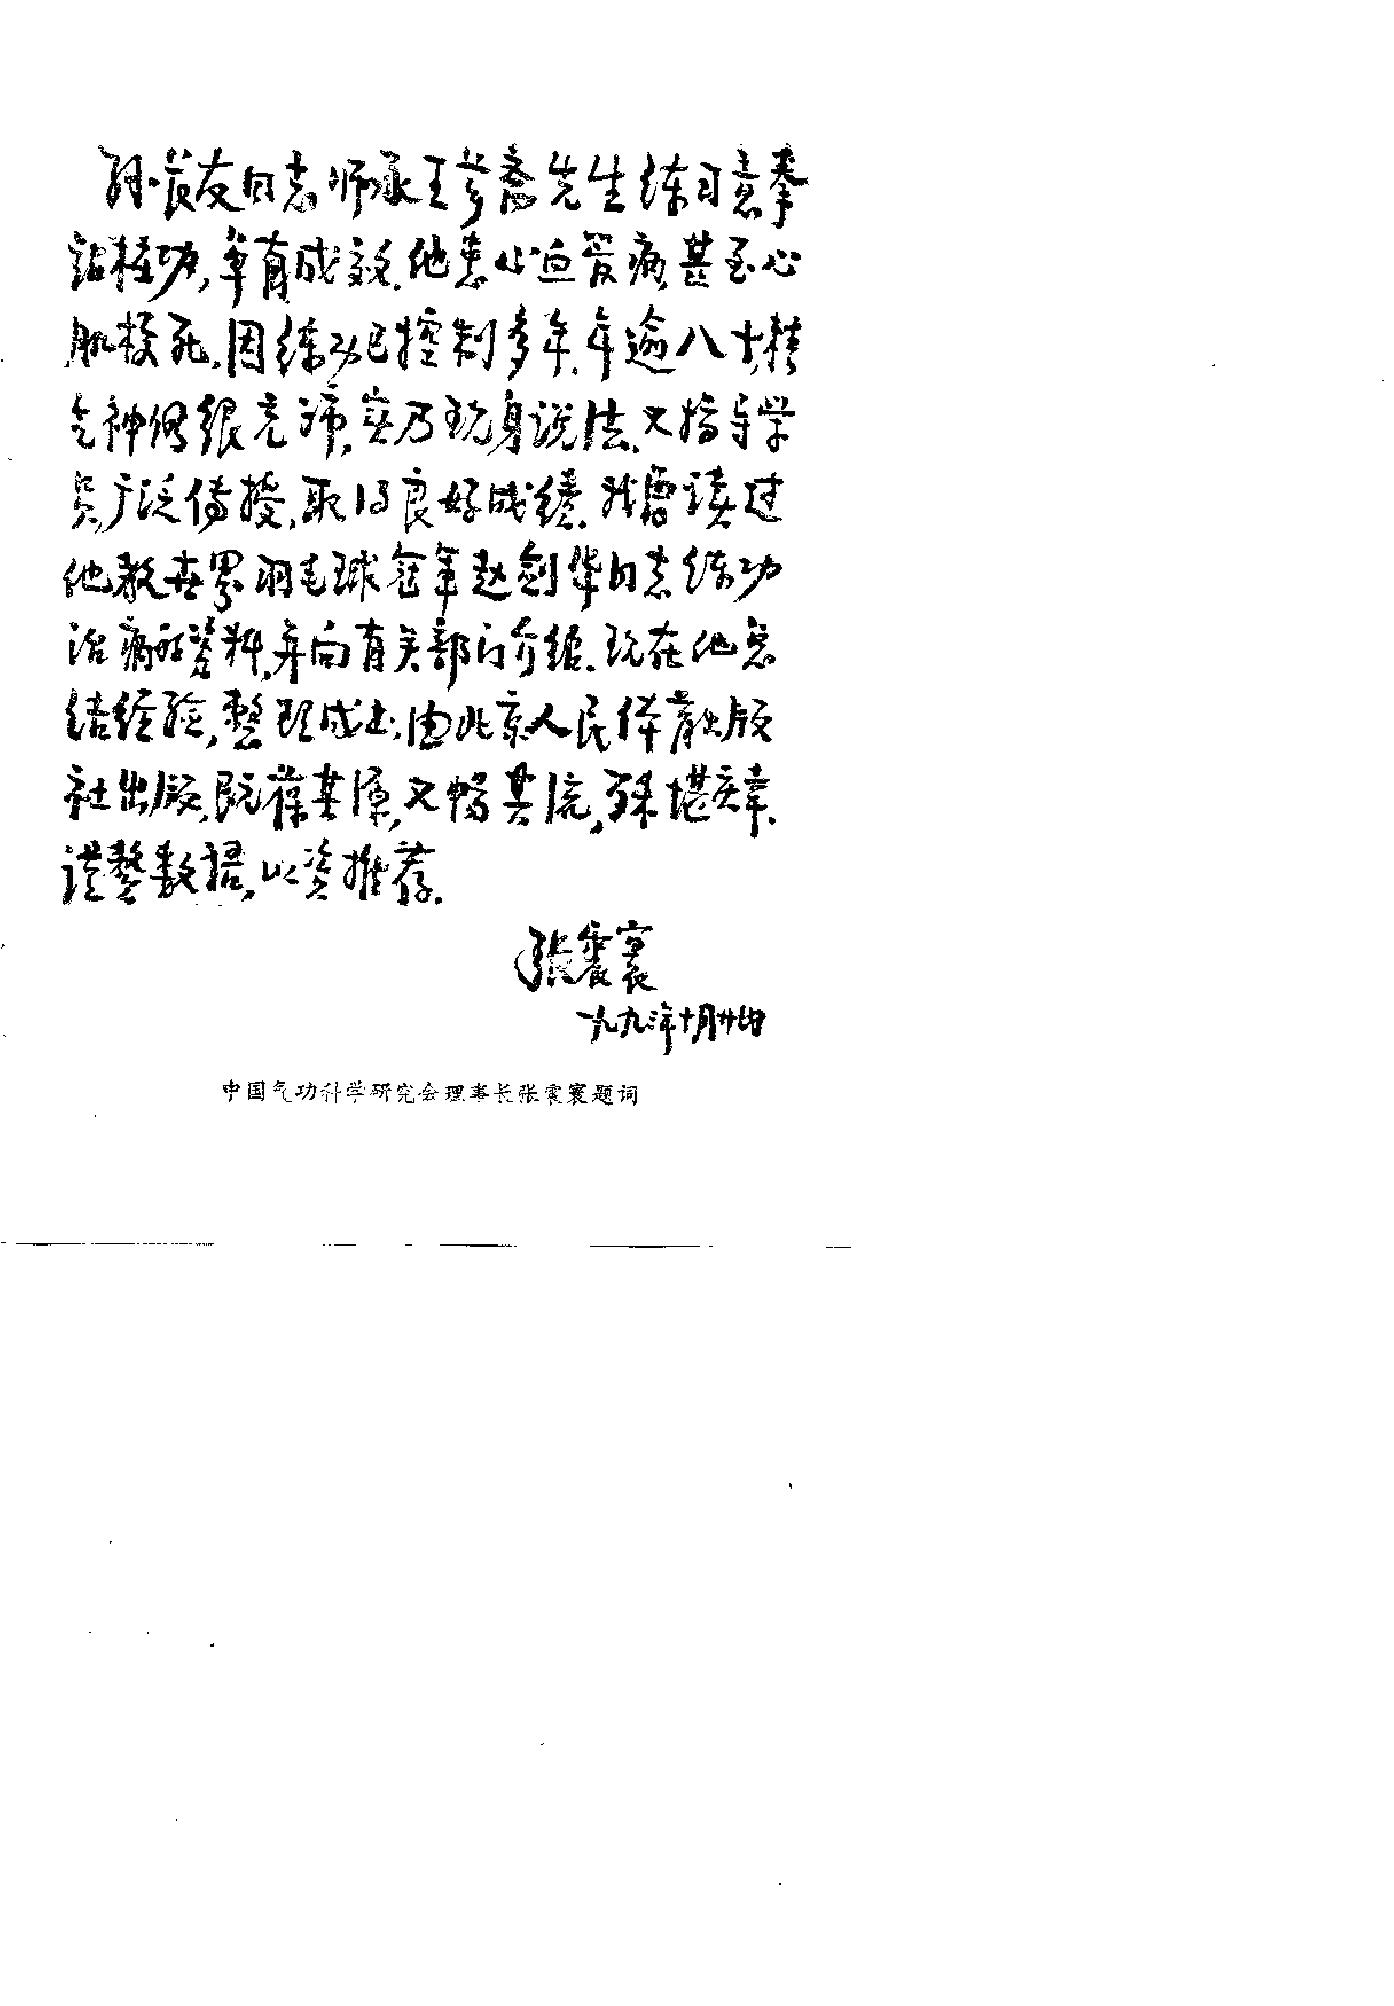 孙长友同志师承王芗斋先生练习意拳
站桩功,卓有成效。他患心血管病甚至心
肌梗死,因练功已控制多年,年逾八十,精
气神仍很充沛,实乃现身说法。又指导学
员,广泛传授,取得良好成绩。我曾读过
他教世界羽毛球冠军赵剑华同志练功
治病的资料,并向有关部门介绍。现在他总
结经验,整理成书,由北京人民体育出版
社出版,既葆其源,又畅其流,殊堪庆幸。
谨整数语,以资推荐。
张震寰
一九九三年十月廿四
中国气功科学研究会理事长张震寰题词